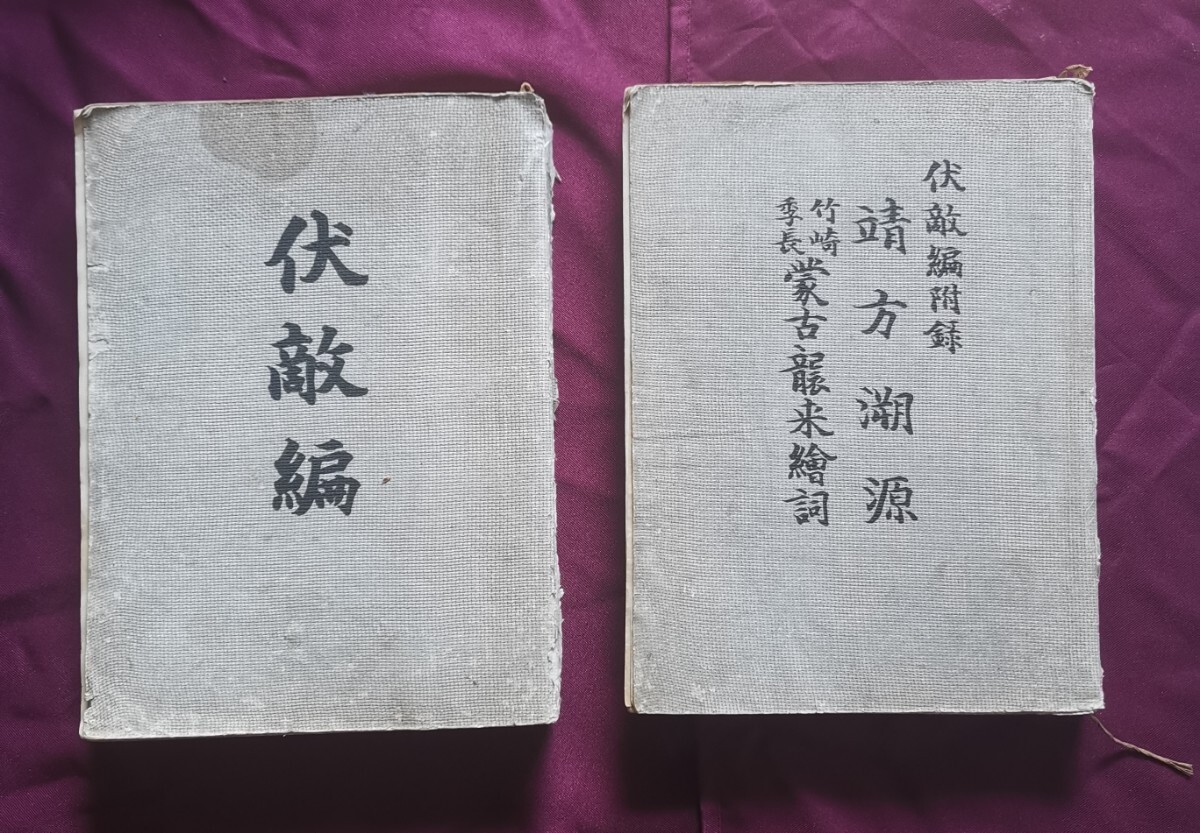 伏敵編
伏敵編附録
靖方溯源
竹崎
季長
蒙古襲来繪詞